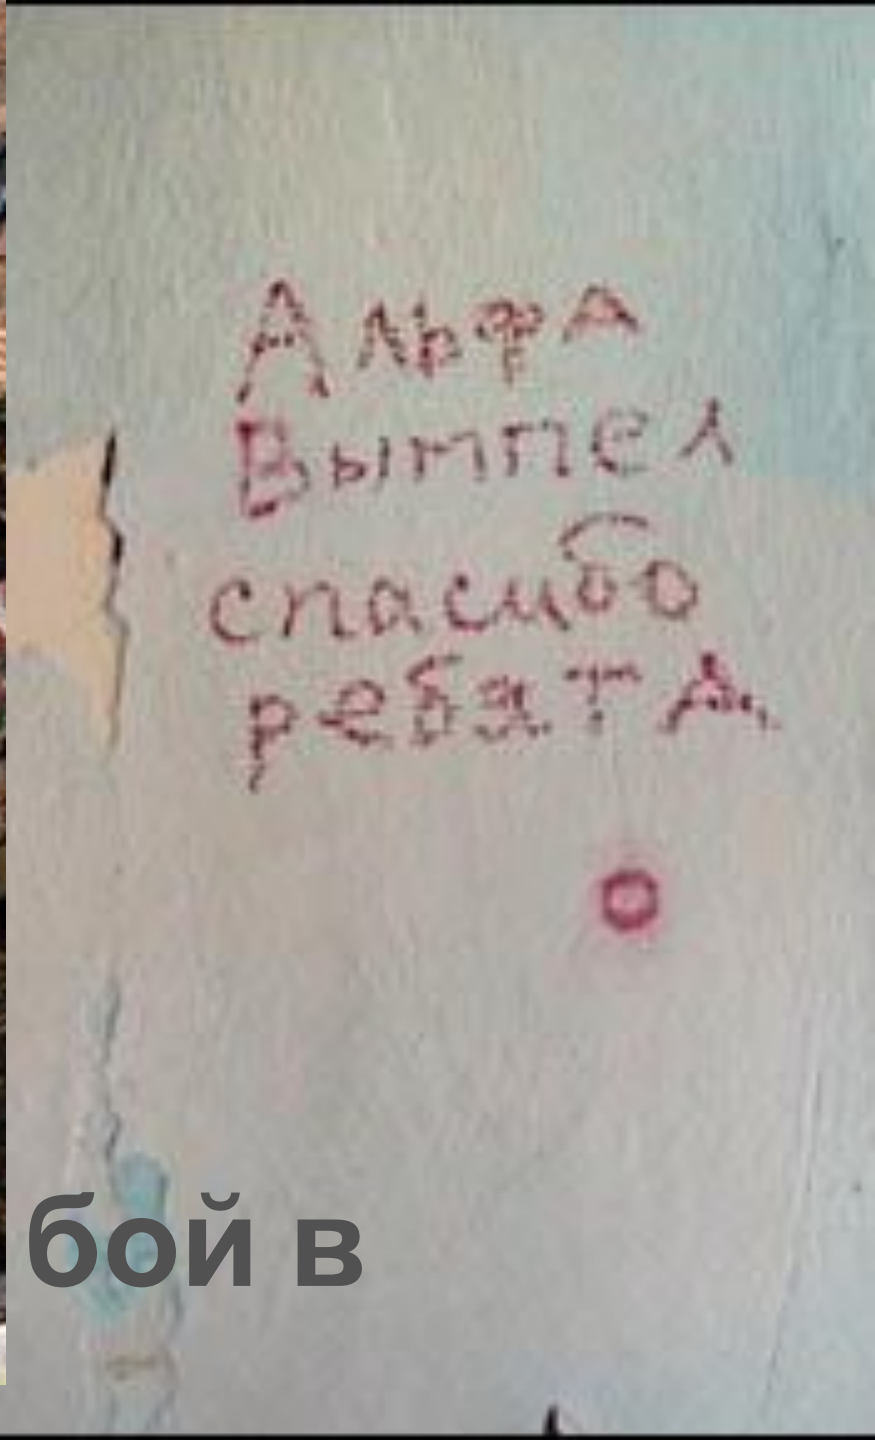 Альфа
Вымпел
спасибо
ребята
бой в